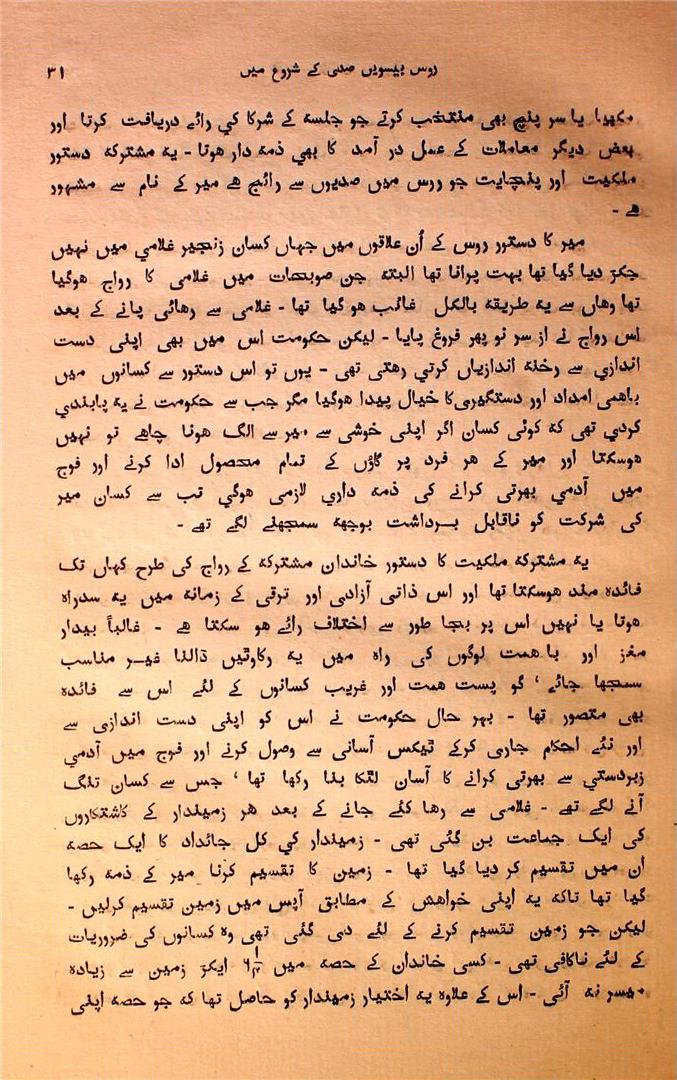 روس بیسویں صدی کے شروع میں ۳۱
مکھیا یا سر پنچ بھی منتخب کرتے جو جلسہ کے شرکا کي رائے دریافت کرتا اور
بعض دیگر معاملات کے عمل در آمد کا بھي ذمہ دار ہوتا - یہ مشترکہ دستور
ملکیت اور پنچایت جو روس میں صدیوں سے رائج ہے میر کے نام سے مشہور
ہے -
میر کا دستور روس کے اُن علاقوں میں جہاں کسان زنجیر غلامي میں نہیں
جکڑ دیا گیا تھا بہت پرانا تھا البتہ جن صوبجات میں غلامی کا رواج ہوگیا
تھا وہاں سے یہ طریقہ بالکل غائب ہو گیا تھا - غلامی سے رہائی پانے کے بعد
اس رواج نے از سر نو پھر فروغ پایا - لیکن حکومت اس میں بھی اپنی دست
اندازي سے رخنہ اندازیاں کرتي رہتی تھی - یوں تو اس دستور سے کسانوں میں
باہمی امداد اور دستگیری کا خیال پیدا ہوگیا مگر جب سے حکومت نے یہ پابندي
کردي تھی کہ کوئی کسان اگر اپنی خوشی سے میر سے الگ ہونا چاہے تو نہیں
ہوسکتا اور میر کے ہر فرد پر گاؤں کے تمام محصول ادا کرنے اور فوج
میں آدمی بھرتی کرانے کی ذمہ داري لازمی ہوگي تب سے کسان میر
کی شرکت کو ناقابل برداشت بوجھہ سمجھنے لگے تھے -
یہ مشترکہ ملکیت کا دستور خاندان مشترکہ کے رواج کی طرح کہاں تک
فائدہ مند ہوسکتا تھا اور اس ذاتی آزادی اور ترقی کے زمانہ میں یہ سدراہ
ہوتا یا نہیں اس پر بجا طور سے اختلاف رائے ہو سکتا ہے - غالباً بیدار
مغز اور با ہمت لوگوں کی راہ میں یہ رکاوٹیں ڈالنا غیر مناسب
سمجھا جائے ‘ گو پست ہمت اور غریب کسانوں کے لئے اس سے فائدہ
بھی متصور تھا - بہر حال حکومت نے اس کو اپنی دست اندازی سے
اور نئے احکام جاری کرکے ٹیکس آسانی سے وصول کرنے اور فوج میں آدمي
زبردستي سے بھرتی کرانے کا آسان لٹکا بنا رکھا تھا ‘ جس سے کسان تنگ
آنے لگے تھے - غلامی سے رہا کئے جانے کے بعد ہر زمیندار کے کاشتکاروں
کی ایک جماعت بن گئی تھی - زمیندار کي کل جائداد کا ایک حصہ
ان میں تقسیم کر دیا گیا تھا - زمین کا تقسیم کرنا میر کے ذمہ رکھا
گیا تھا تاکہ یہ اپنی خواہش کے مطابق آپس میں زمین تقسیم کرلیں -
لیکن جو زمین تقسیم کرنے کے لئے دی گئی تھی وہ کسانوں کی ضروریات
کے لئے ناکافی تھی - کسی خاندان کے حصہ میں ایکڑ زمین سے زیادہ
میسر نہ آئی - اس کے علاوہ یہ اختیار زمیندار کو حاصل تھا کہ جو حصہ اپنی